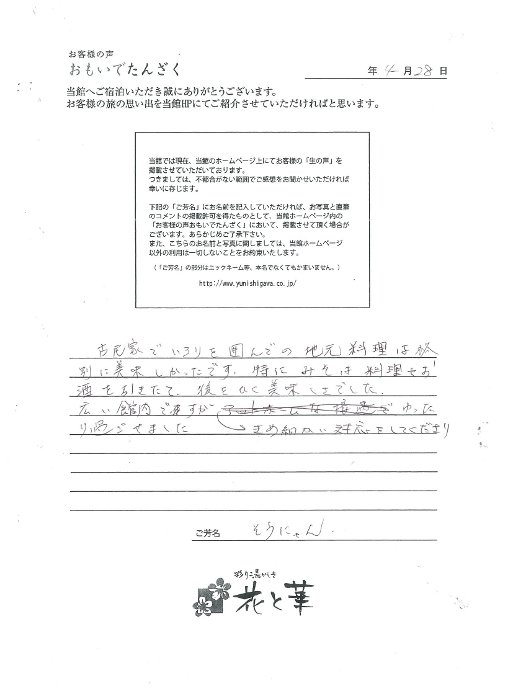 お客様の声
おもいでたんざく
年 4 月 28 日
当館へご宿泊いただき誠にありがとうございます。
お客様の旅の思い出を当館HPにてご紹介させていただければと思います。
当館では現在、当館のホームページ上にてお客様の「生の声」を
掲載させていただいております。
つきましては、不都合がない範囲でご感想をお聞かせいただければ
幸いに存じます。
下記の「ご芳名」にお名前を記入していただければ、お写真と直筆
のコメントの掲載許可を得たものとして、当館ホームページ内の
「お客様の声おもいでたんざく」において、掲載させて頂く場合が
ございます。あらかじめご了承下さい。
また、こちらのお名前と写真に関しましては、当館ホームページ
以外の利用は一切しないことをお約束いたします。
(「ご芳名」の部分はニックネーム等、本名でなくてもかまいません。)
http://www.yunishigava.co.jp/
古民家でいろりを囲んでの地元料理は格
別に美味しかったです。特にみそは料理やお
酒を引きたて、後をひく美味しさでした。
広い館内ですが アットホームな接遇で ゆった
り過ごせました きめ細かい対応をしてくださり
ご芳名 そうにゃん
彩り湯かしき
花と華